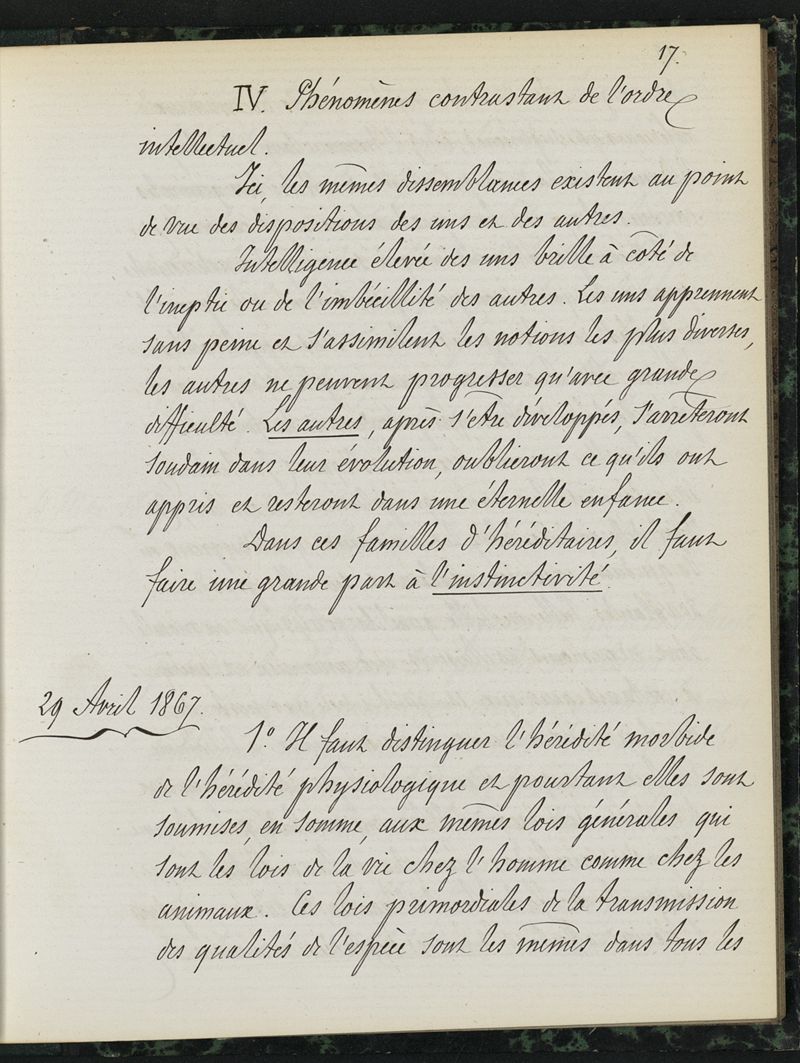 17.
IV. Phénomènes contrastant de l'ordre
intellectuel.
Ici, les mêmes dissemblances existent au point
de vue des dispositions des uns et des autres.
Intelligence élevée des uns brille à côté de
l'ineptie ou de l'imbécillité des autres. Les uns apprennent
sans peine et s'assimilent les notions les plus diverses,
les autres ne peuvent progresser qu'avec grande
difficulté. Les autres, après s'être développés, s'arrêteront
soudain dans leur évolution, oublieront ce qu'ils ont
appris et resteront dans une éternelle enfance.
Dans ces familles d'héréditaires, il faut
faire une grande part à l'instinctivité.
29 Avril 1867.
1° Il faut distinguer l'hérédité morbide
de l'hérédité physiologique et pourtant elles sont
soumises, en somme, aux mêmes lois générales qui
sont les lois de la vie chez l'homme comme chez les
animaux. Ces lois primordiales de la transmission
des qualités de l'espèce sont les mêmes dans tous les